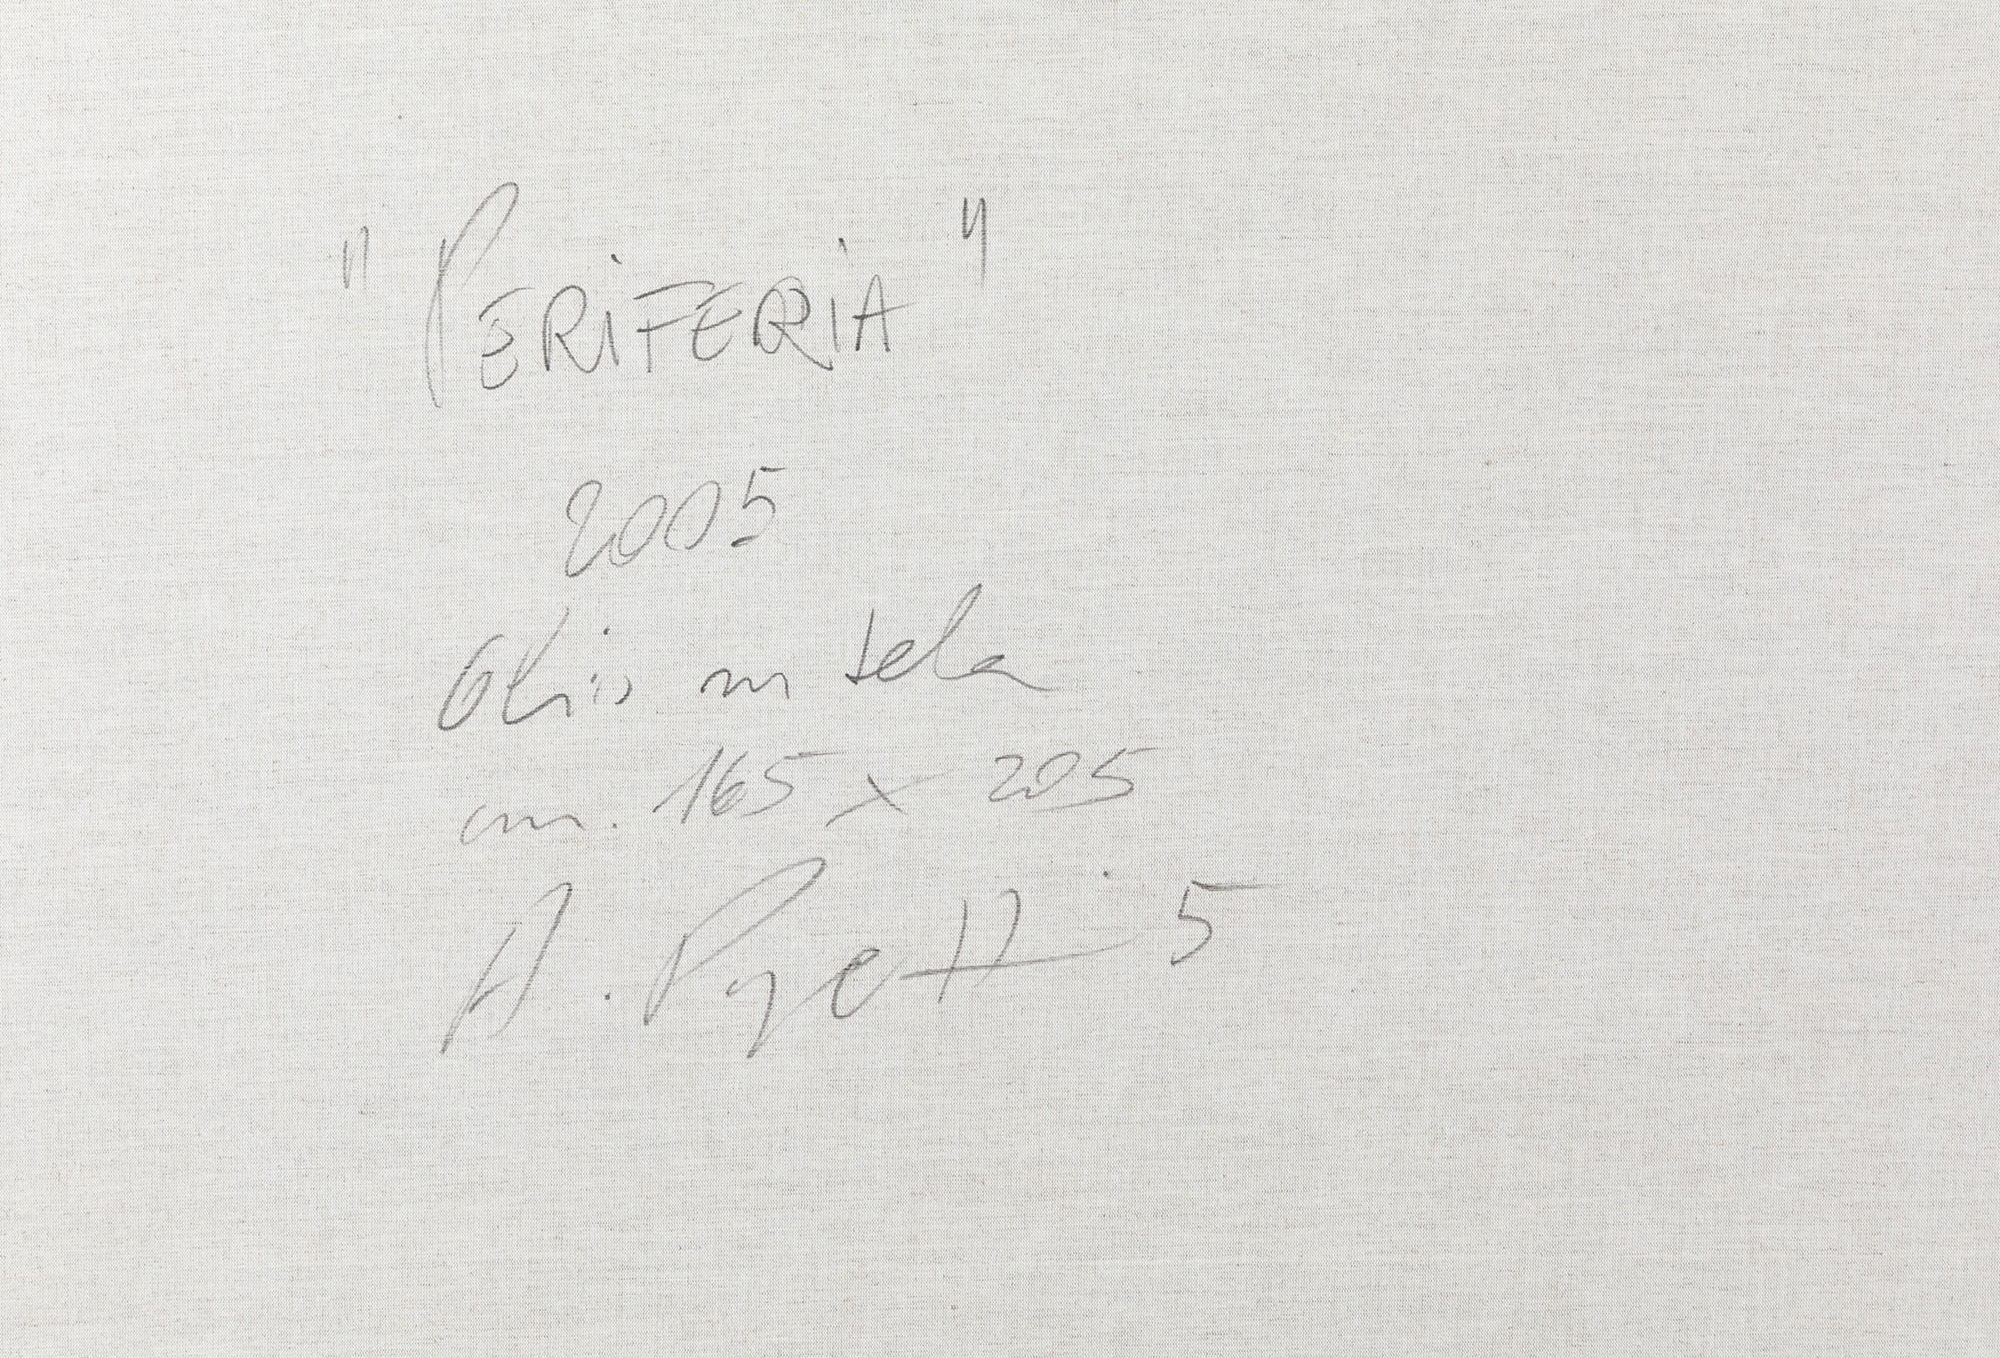 "PERIFERIA"
2005
Olio su tela
cm. 165 x 205
A. 5